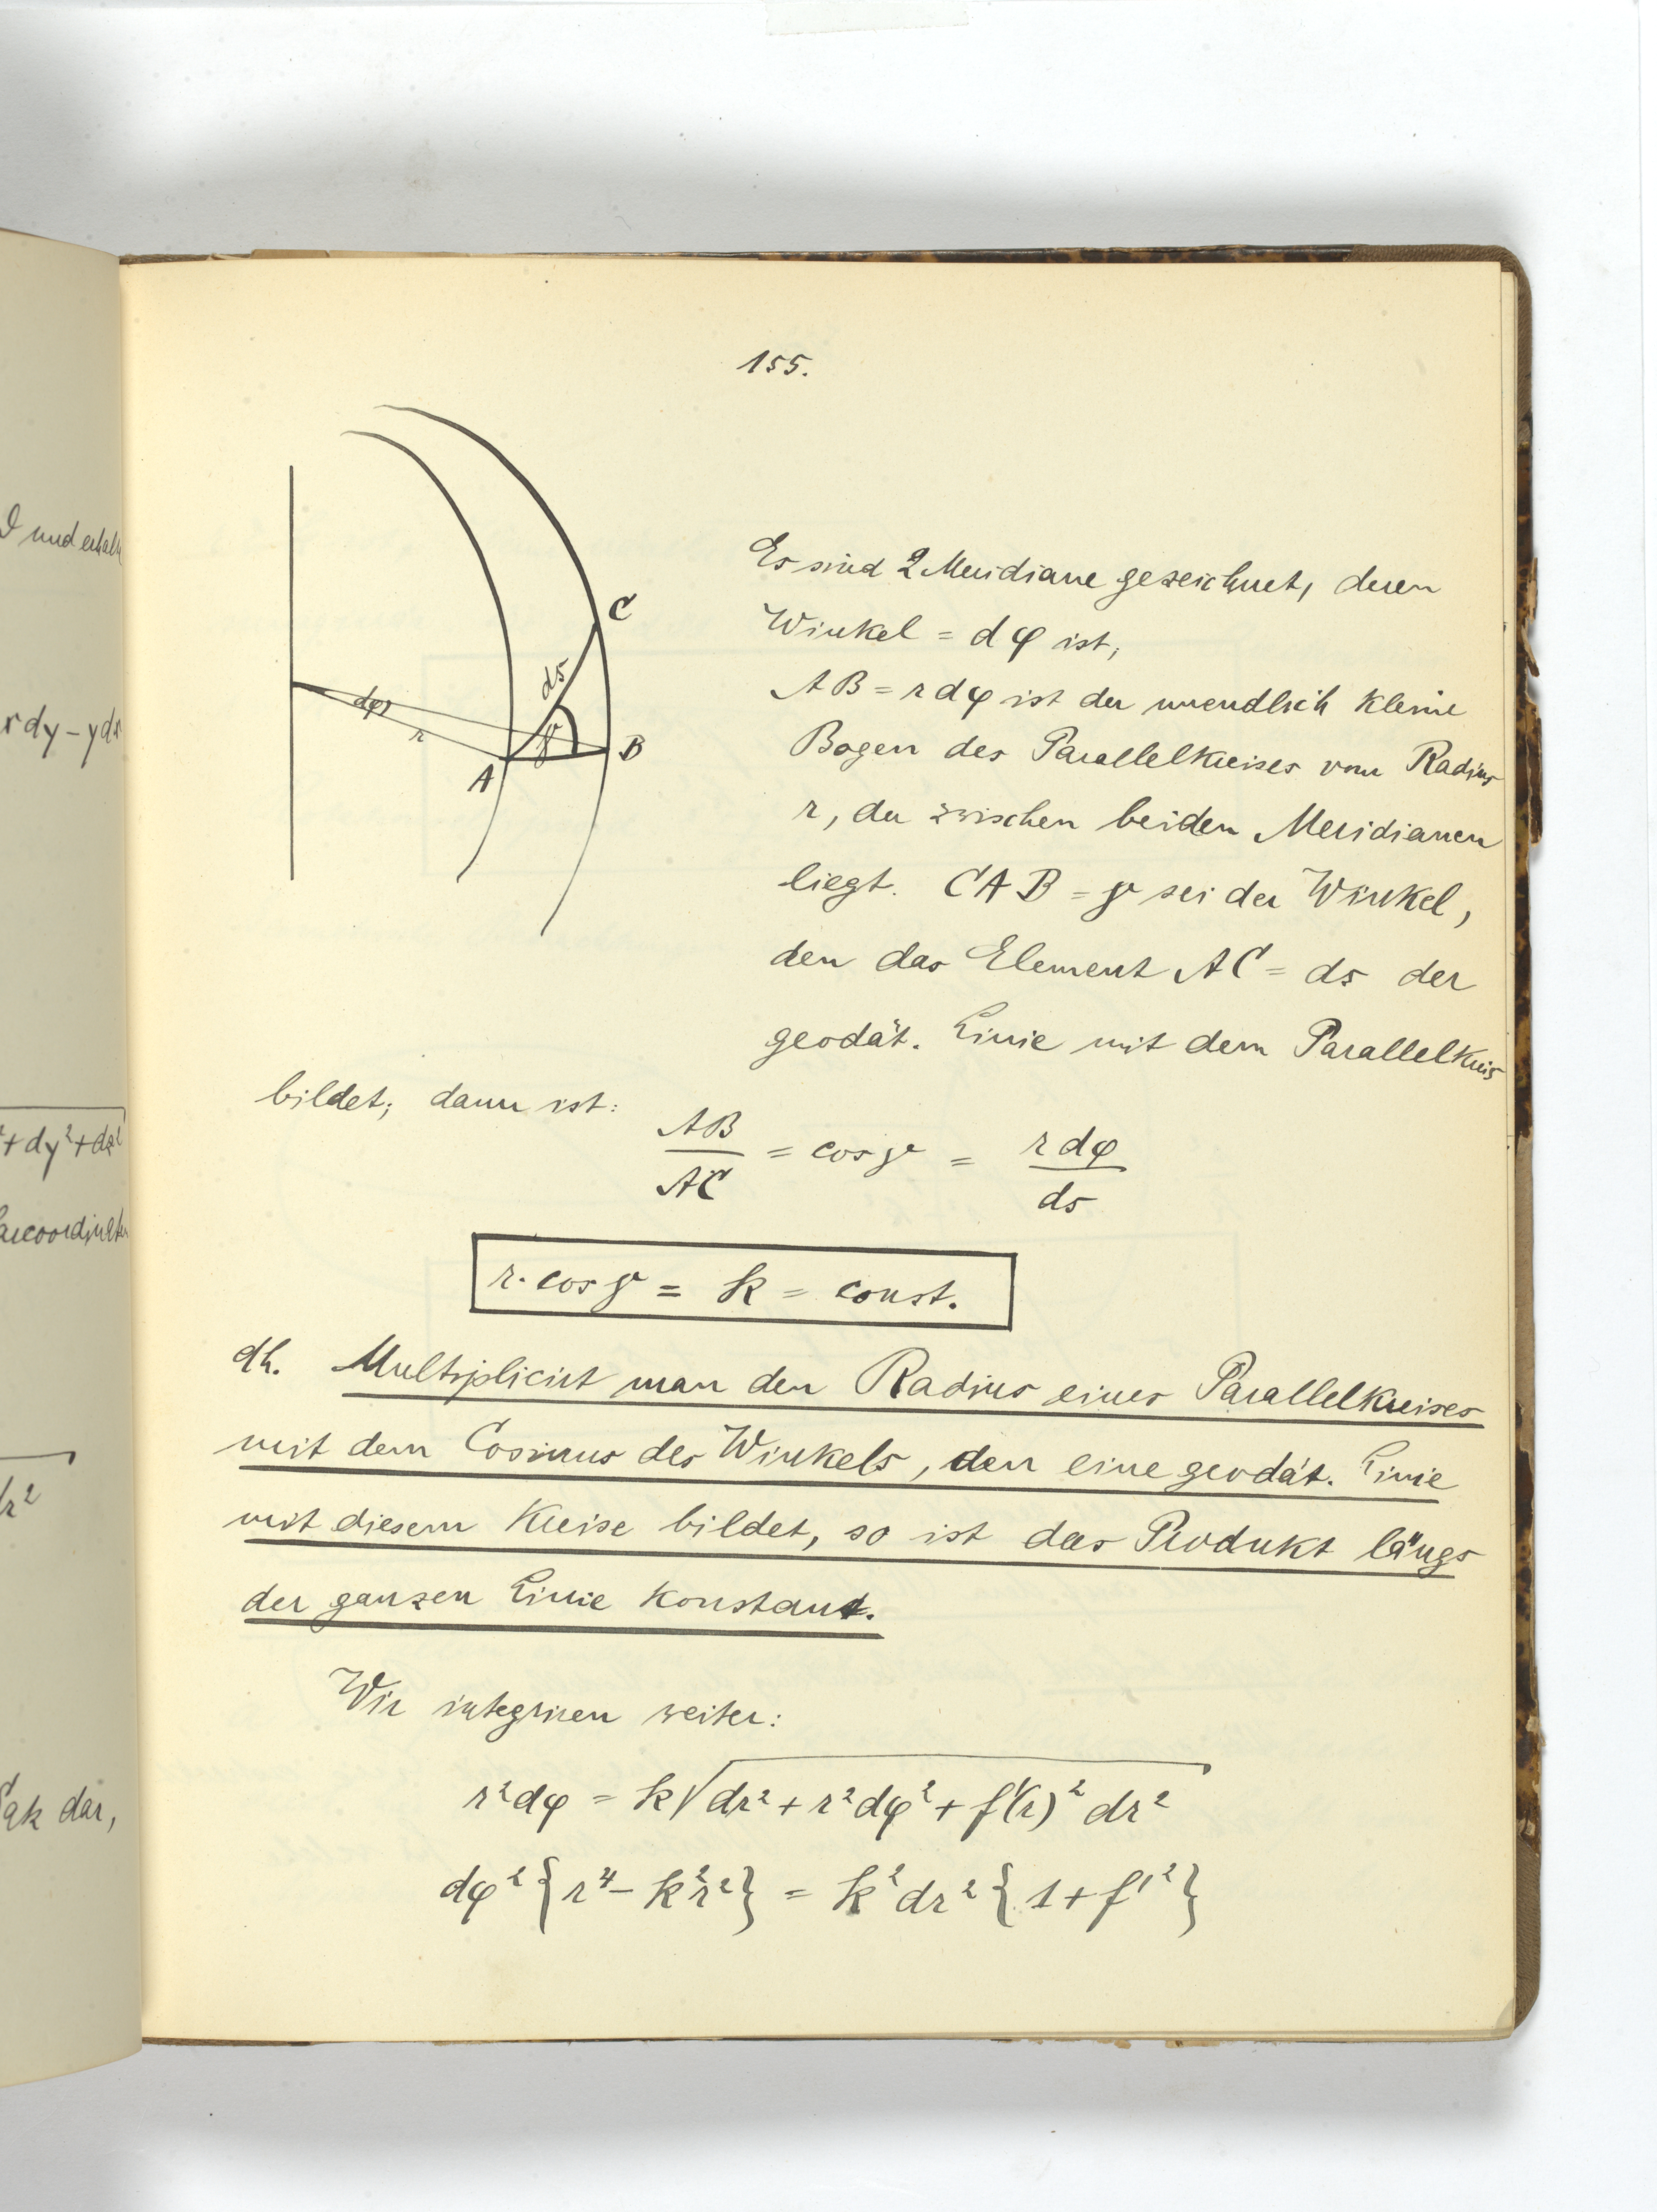 155.
I und erhalt
rdy – ydx
² + dy² + dz²
dr²
dar,
C
ds
dφ
r
γ
A
B
Es sind 2 Meridiane gezeichnet, deren
Winkel = dφ ist,
AB = r dφ ist der unendlich kleine
Bogen des Parallelkreises vom Radius
r, der zwischen beiden Meridianen
liegt. CAB = γ sei der Winkel,
den das Element AC = ds der
geodät. Linie mit dem Parallelkreis
bildet; dann ist:
AB/AC = cos γ = r dφ/ds
r · cos γ = k = const.
dh. Multiplicirt man den Radius eines Parallelkreises
mit dem Cosinus des Winkels, den eine geodät. Linie
mit diesem Kreise bildet, so ist das Produkt längs
der ganzen Linie konstant.
Wir integriren weiter:
r²dφ = k√(dr² + r²dφ² + f'(r)² dr²)
dφ² {r⁴ – k²r²} = k² dr² {1 + f'²}